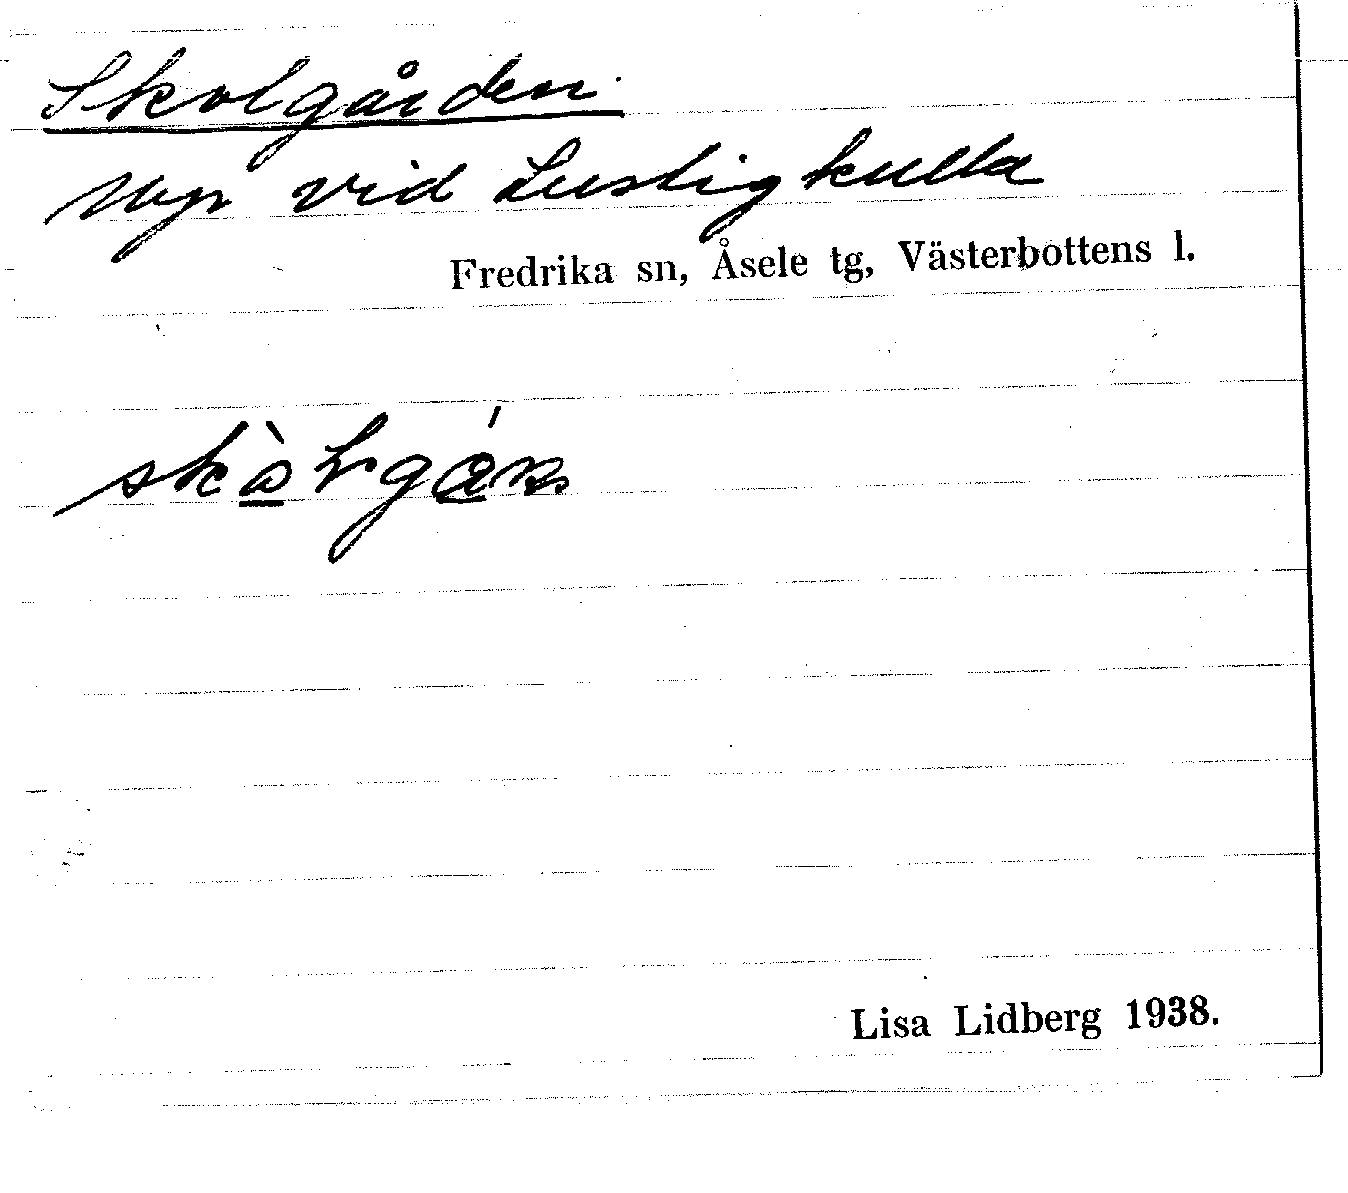 Skolgården
vid Lustigkulla
Fredrika sn, Åsele tg, Västerbottens l.
Lisa Lidberg 1938.